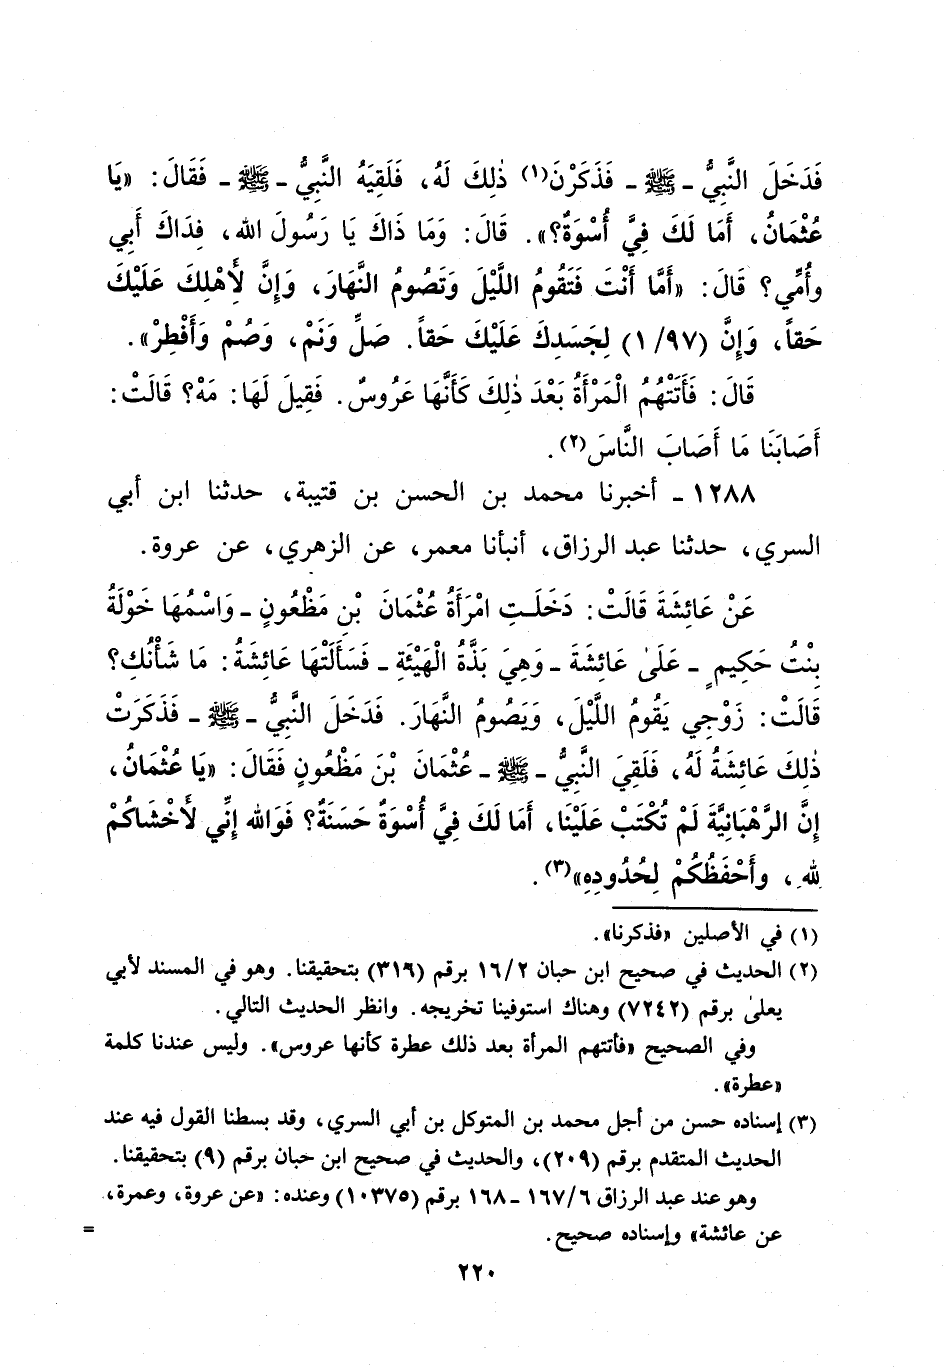 فَدَخَلَ النَّبِيُّ ـ ﷺ ـ فَذَكَرْنَ(١) ذٰلِكَ لَهُ، فَلَقِيَهُ النَّبِيُّ ـ ﷺ ـ فَقَالَ: «يَا
عُثْمَانُ، أَمَا لَكَ فِيَّ أُسْوَةٌ؟». قَالَ: وَمَا ذَاكَ يَا رَسُولَ الله، فِدَاكَ أَبِي
وأُمِّي؟ قَالَ: «أَمَّا أَنْتَ فَتَقُومُ اللَّيْلَ وَتَصُومُ النَّهَارَ، وَإِنَّ لِأَهْلِكَ عَلَيْكَ
حَقاً، وَإِنَّ (٩٧/ ١) لِجَسَدِكَ عَلَيْكَ حَقاً. صَلِّ وَنَمْ، وَصُمْ وَأَفْطِرْ».
قَالَ: فَأَتَتْهُمُ الْمَرْأَةُ بَعْدَ ذٰلِكَ كَأَنَّهَا عَرُوسٌ. فَقِيلَ لَهَا: مَهْ؟ قَالَتْ:
أَصَابَنَا مَا أَصَابَ النَّاسَ(٢).
١٢٨٨ ـ أخبرنا محمد بن الحسن بن قتيبة، حدثنا ابن أبي
السري، حدثنا عبد الرزاق، أنبأنا معمر، عن الزهري، عن عروة.
عَنْ عَائِشَةَ قَالَتْ: دَخَلَتِ امْرَأَةُ عُثْمَانَ بْنِ مَظْعُونٍ ـ وَاسْمُهَا خَوْلَةُ
بِنْتُ حَكِيمٍ ـ عَلَىٰ عَائِشَةَ ـ وَهِيَ بَذَّةُ الْهَيْئَةِ ـ فَسَأَلَتْهَا عَائِشَةُ: مَا شَأْنُكِ؟
قَالَتْ: زَوْجِي يَقُومُ اللَّيْلَ، وَيَصُومُ النَّهَارَ. فَدَخَلَ النَّبِيُّ ـ ﷺ ـ فَذَكَرَتْ
ذٰلِكَ عَائِشَةُ لَهُ، فَلَقِيَ النَّبِيُّ ـ ﷺ ـ عُثْمَانَ بْنَ مَظْعُونٍ فَقَالَ: «يَا عُثْمَانُ،
إِنَّ الرَّهْبَانِيَّةَ لَمْ تُكْتَبْ عَلَيْنَا، أَمَا لَكَ فِيَّ أُسْوَةٌ حَسَنَةٌ؟ فَوَالله إِنِّي لَأَخْشَاكُمْ
لله، وأَحْفَظُكُمْ لِحُدُودِهِ»(٣).
(١) في الأصلين «فذكرنا».
(٢) الحديث في صحيح ابن حبان ١٦/٢ برقم (٣١٦) بتحقيقنا. وهو في المسند لأبي
يعلىٰ برقم (٧٢٤٢) وهناك استوفينا تخريجه. وانظر الحديث التالي.
وفي الصحيح «فأتتهم المرأة بعد ذلك عطرة كأنها عروس». وليس عندنا كلمة
«عطرة».
(٣) إسناده حسن من أجل محمد بن المتوكل بن أبي السري، وقد بسطنا القول فيه عند
الحديث المتقدم برقم (٢٠٩)، والحديث في صحيح ابن حبان برقم (٩) بتحقيقنا.
وهو عند عبد الرزاق ١٦٧/٦ ـ ١٦٨ برقم (١٠٣٧٥) وعنده: «عن عروة، وعمرة،
عن عائشة» وإسناده صحيح. =
٢٢٠